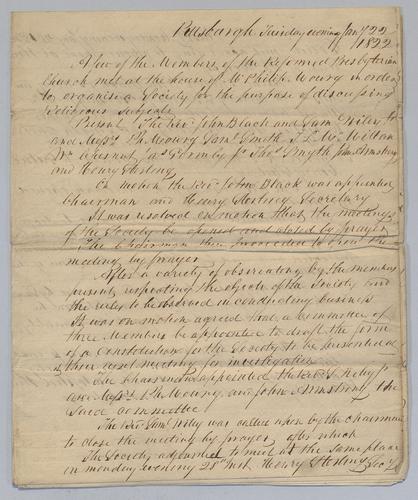 Pittsburgh Tuesday evening Jany 22
1822
A few of the Members of the Reformed Presbyterian
Church met at the house of Mr Philip Mowry in order
to organise a Society for the purpose of discussing
Religious Subjects
Present The Revd John Black and Saml Wiley
and Messrs Ph. Mowry Saml Smith
Thos Smyth John Armstrong
and Henry Sterling
On motion the Revd John Black was appointed
Chairman and Henry Sterling Secretary
It was resolved on motion that the meetings
of the Society be opened and closed by prayer
The Chairman then proceeded to open the
meeting by prayer
After a variety of observations by the members
present respecting the objects of the Society and
the rules to be observed in conducting business
It was on motion agreed that a Committee of
three Members be appointed to draft the form
of a Constitution for the Society to be presented at
their next meeting for investigation
The Chairman appointed the Revd S. Wiley
and Messrs Ph. Mowry and John Armstrong the
Said committee
The Revd Saml Wiley was called upon by the chairman
to close the meeting by prayer after which
The Society adjourned to meet at the same place
on monday evening 28th Inst Henry Sterling Secy